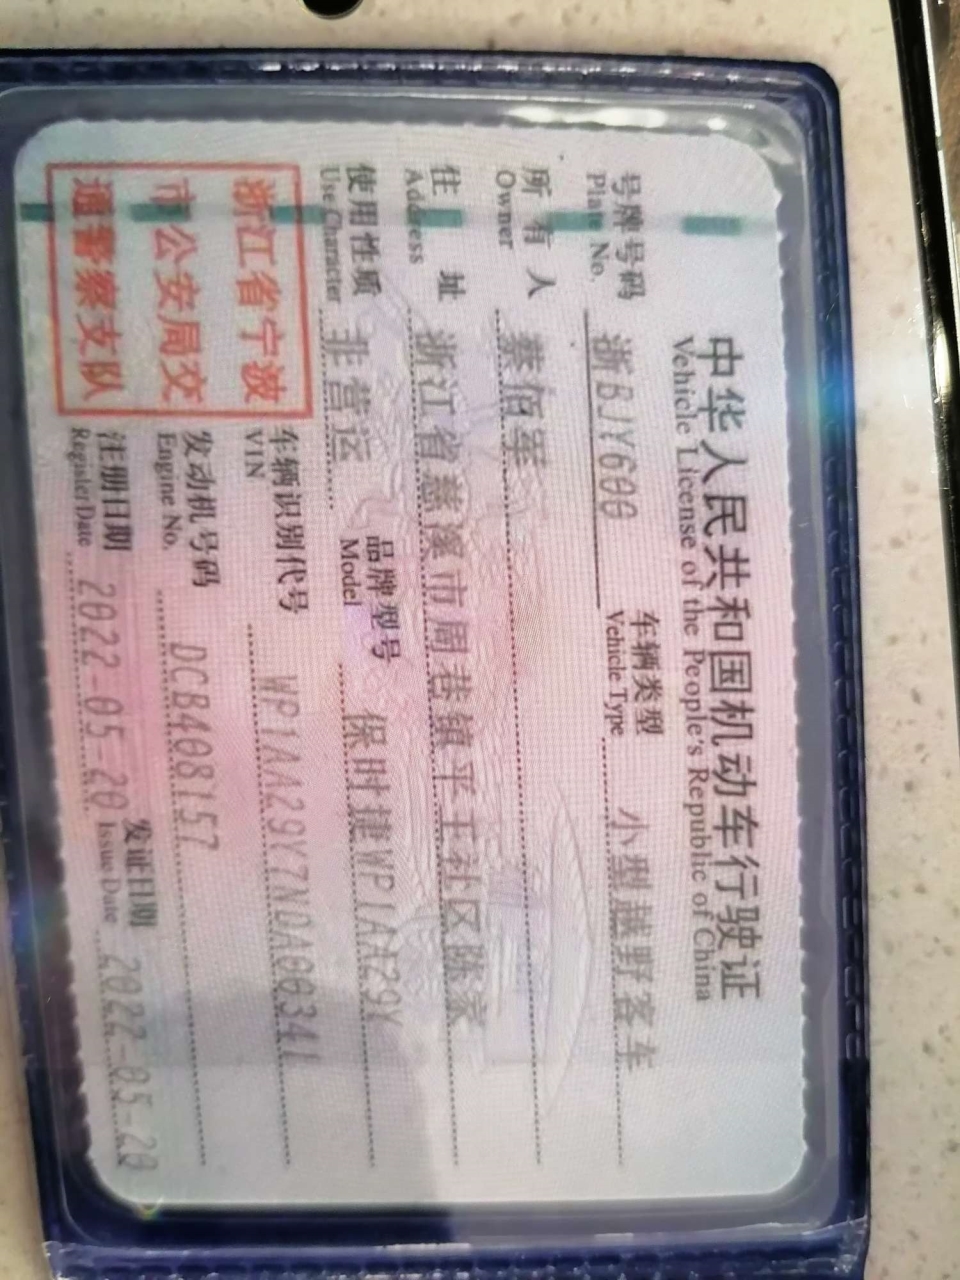 中华人民共和国机动车行驶证
Vehicle License of the People's Republic of China
号牌号码 浙BJY600 车辆类型 小型越野客车
Plate No. Vehicle Type
所有人 蔡佰军
Owner
住址 浙江省慈溪市周巷镇平王社区陈家
Address
使用性质 非营运 品牌型号 保时捷WP1AA29Y
Use Character Model
浙江省宁波
市公安局交
通警察支队
车辆识别代号 WP1AA29Y7NDA00341
VIN
发动机号码 DCB408157
Engine No.
注册日期 2022-05-20 发证日期 2022-05-20
Register Date Issue Date